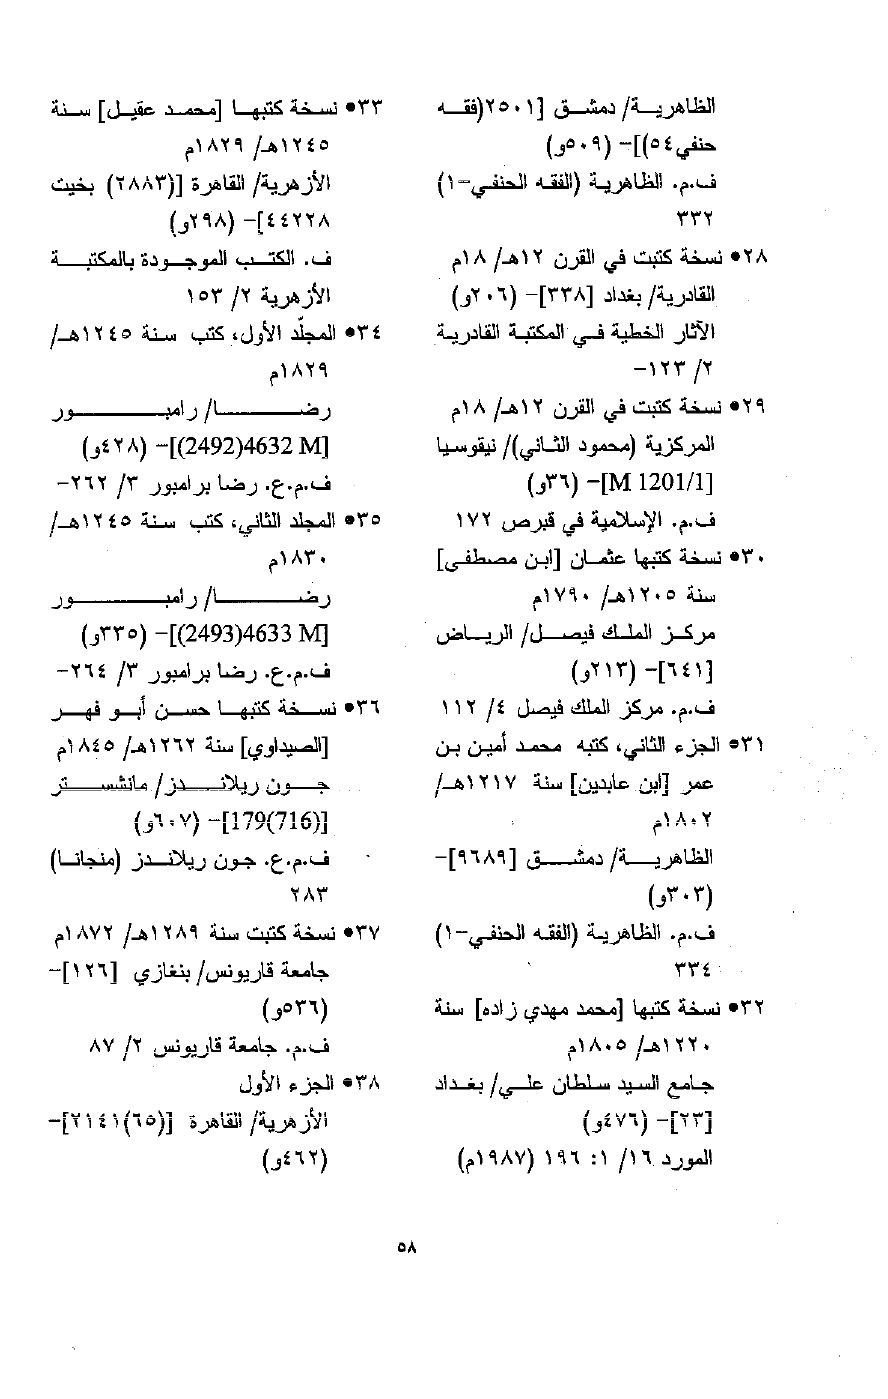 الظاهرية/ دمشق [٢٥٠١(فقه
حنفي٥٤)]- (٥٠٩و)
ف.م. الظاهرية (الفقه الحنفي-١)
٣٣٢
٢٨• نسخة كتبت في القرن ١٢هـ/ ١٨م
القادرية/ بغداد [٣٣٨]- (٢٠٦و)
الآثار الخطية في المكتبة القادرية
٢/ ١٢٣-
٢٩• نسخة كتبت في القرن ١٢هـ/ ١٨م
المركزية (محمود الثاني)/ نيقوسيا
[M 1201/1]- (٣٦و)
ف.م. الإسلامية في قبرص ١٧٢
٣٠• نسخة كتبها عثمان [ابن مصطفى]
سنة ١٢٠٥هـ/ ١٧٩٠م
مركز الملك فيصل/ الرياض
[٦٤١]- (٢١٣و)
ف.م. مركز الملك فيصل ٤/ ١١٢
٣١• الجزء الثاني، كتبه محمد أمين بن
عمر [ابن عابدين] سنة ١٢١٧هـ/
١٨٠٢م
الظاهرية/ دمشق [٩٦٨٩]-
(٣٠٣و)
ف.م. الظاهرية (الفقه الحنفي-١)
٣٣٤
٣٢• نسخة كتبها [محمد مهدي زاده] سنة
١٢٢٠هـ/ ١٨٠٥م
جامع السيد سلطان علي/ بغداد
[٢٣]- (٤٧٦و)
المورد ١٦/ ١: ١٩٦ (١٩٨٧م)
٣٣• نسخة كتبها [محمد عقيل] سنة
١٢٤٥هـ/ ١٨٢٩م
الأزهرية/ القاهرة [(٢٨٨٣) بخيت
٤٤٢٢٨]- (٢٩٨و)
ف. الكتب الموجودة بالمكتبة
الأزهرية ٢/ ١٥٣
٣٤• المجلّد الأول، كتب سنة ١٢٤٥هـ/
١٨٢٩م
رضا/ رامبور
[4632 M(2492)]- (٤٢٨و)
ف.م.ع. رضا برامبور ٣/ ٢٦٢-
٣٥• المجلد الثاني، كتب سنة ١٢٤٥هـ/
١٨٣٠م
رضا/ رامبور
[4633 M(2493)]- (٣٣٥و)
ف.م.ع. رضا برامبور ٣/ ٢٦٤-
٣٦• نسخة كتبها حسن أبو فهر
[الصيداوي] سنة ١٢٦٢هـ/ ١٨٤٥م
جون ريلاندز/ مانشستر
[179(716)]- (٦٠٧و)
ف.م.ع. جون ريلاندز (منجانا)
٢٨٣
٣٧• نسخة كتبت سنة ١٢٨٩هـ/ ١٨٧٢م
جامعة قاريونس/ بنغازي [١٢٦]-
(٥٣٦و)
ف.م. جامعة قاريونس ٢/ ٨٧
٣٨• الجزء الأول
الأزهرية/ القاهرة [(٦٥)٢١٤١]-
(٤٦٢و)
٥٨